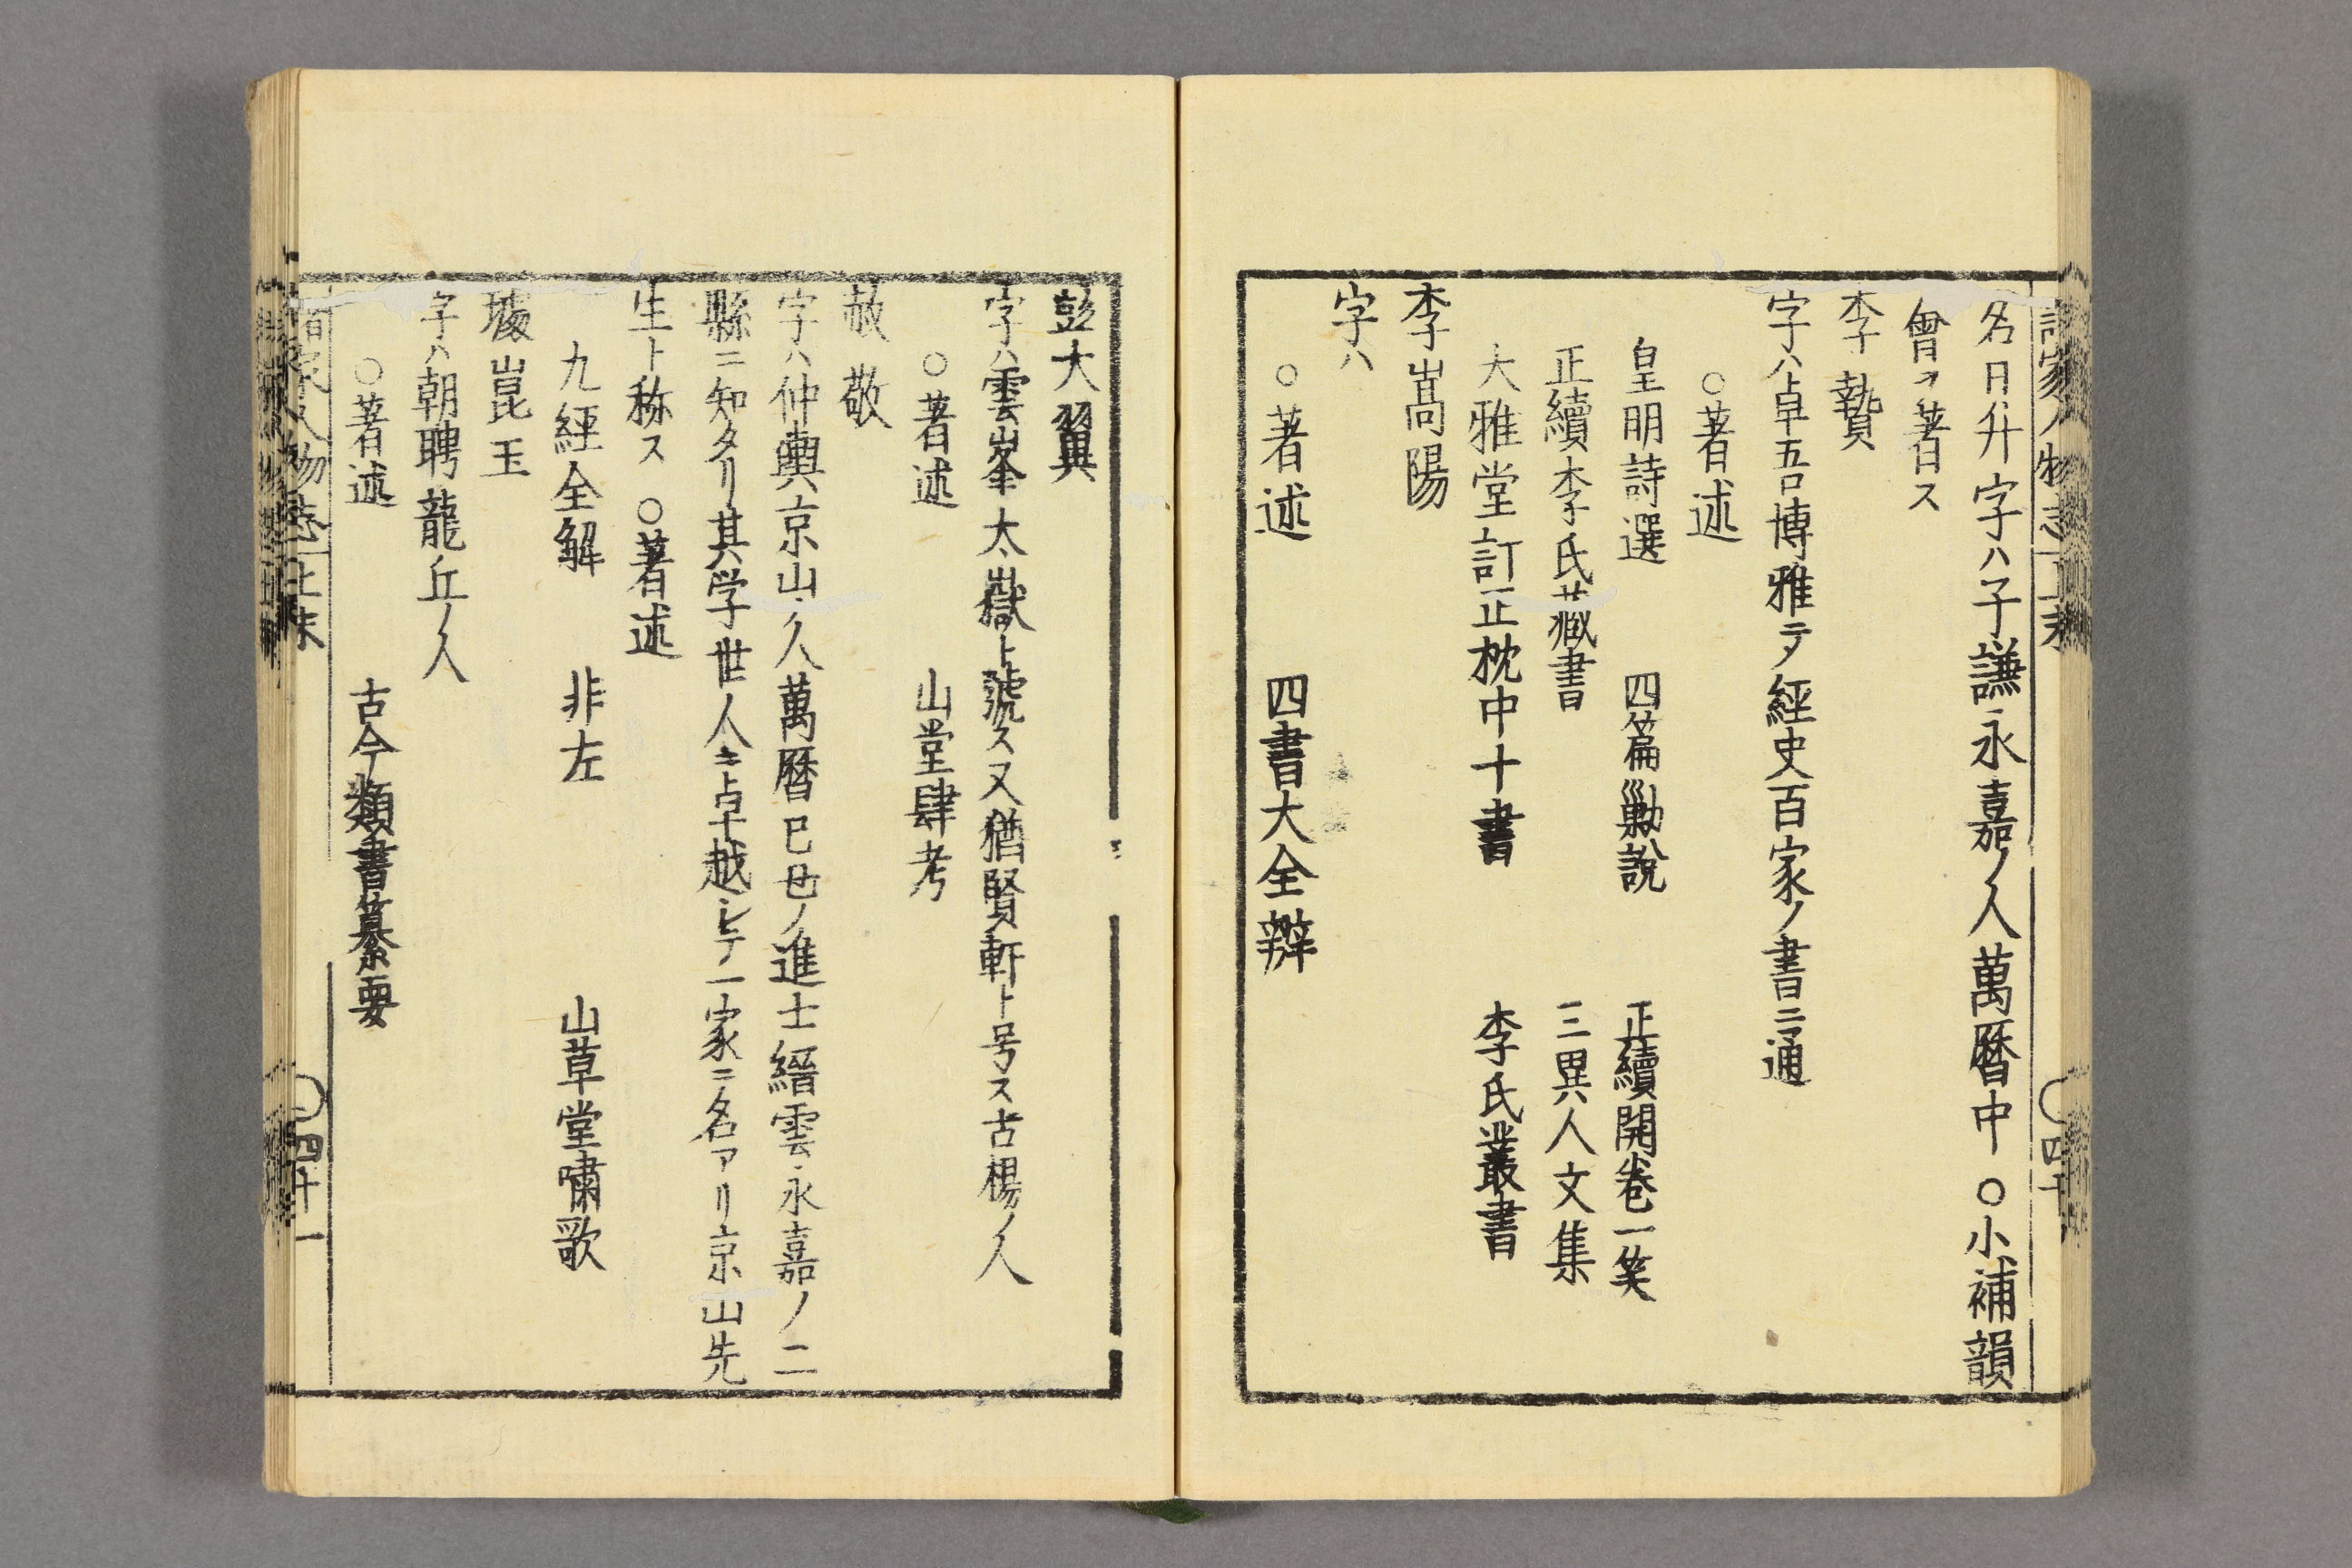 諸家人物志 上末 〇四十
名日升字ハ子謙永嘉ノ人萬暦中 〇小補韻
會ヲ著ス
李贄
字ハ卓吾博雅テ經史百家ノ書ニ通
〇著述
皇明詩選 四篇勦說 正續開卷一笑
正續李氏藏書 三異人文集
大雅堂訂正枕中十書 李氏叢書
李嵩陽
字ハ
〇著述 四書大全辯
彭大翼
字ハ雲峯太嶽ト號ス又猶賢軒ト号ス古楊ノ人
〇著述 山堂肆考
敬
字ハ仲輿京山ノ人萬暦己丑ノ進士縉雲永嘉ノ二
縣ニ知タリ其学世人ニ卓越シテ一家ニ名アリ京山先
生ト称ス 〇著述
九經全解 非左 山草堂嘯歌
璩崑玉
字ハ朝聘龍丘ノ人
〇著述 古今類書纂要
諸家人物志 上末 〇四十一